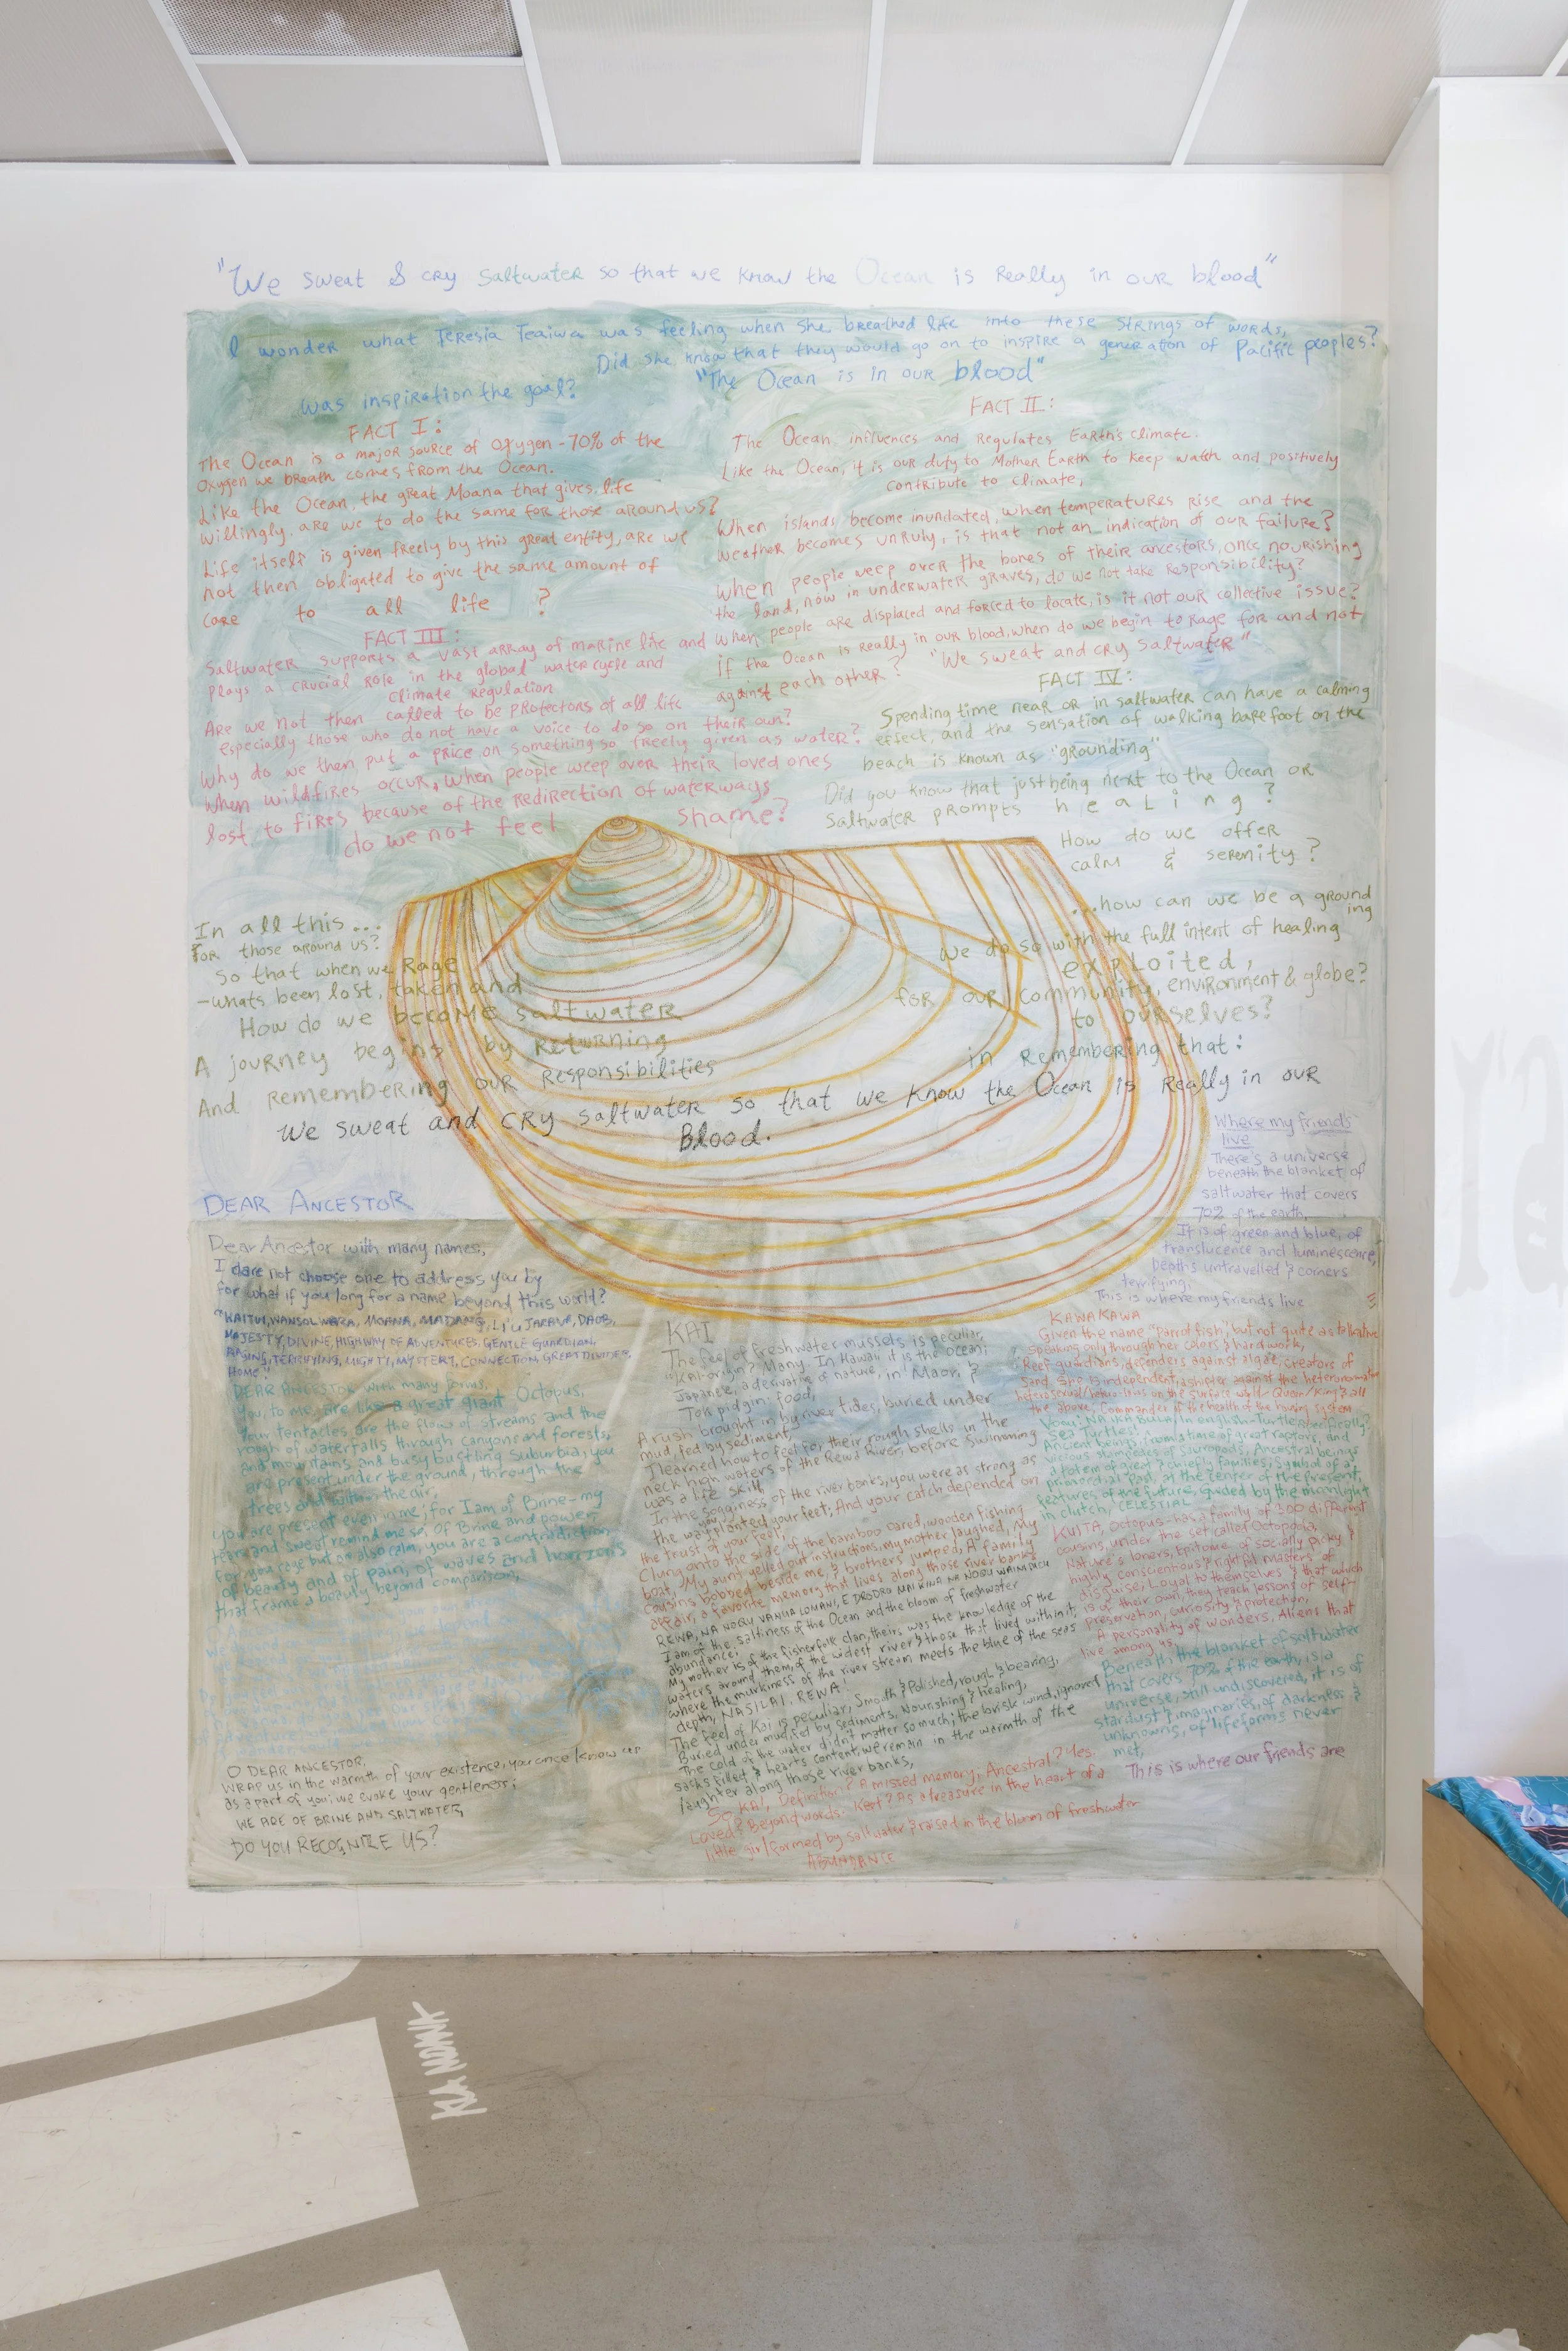 "We sweat & cry saltwater so that we know the Ocean is Really in our blood"
I wonder what Teresia Teaiwa was feeling when she breathed life into these strings of words,
Did she know that they would go on to inspire a generation of Pacific peoples?
was inspiration the goal?
"The Ocean is in our blood"
FACT I:
The Ocean is a major source of oxygen - 70% of the
oxygen we breath comes from the Ocean.
Like the Ocean, the great Moana that gives life
willingly. are we to do the same for those around us?
Life itself is given freely by this great entity, are we
not then obligated to give the same amount of
care to all life ?
FACT II:
The Ocean influences and Regulates Earth's climate.
Like the Ocean, it is our duty to Mother Earth to keep watch and positively
contribute to climate,
When islands become inundated, when temperatures rise and the
weather becomes unruly, is that not an indication of our failure?
When people weep over the bones of their ancestors, once nourishing
the land, now in underwater graves, do we not take responsibility?
when people are displaced and forced to locate, is it not our collective issue?
if the Ocean is really in our blood, when do we begin to rage for and not
against each other? "We sweat and cry saltwater"
FACT III:
Saltwater supports a vast array of marine life and
plays a crucial role in the global water cycle and
climate regulation
Are we not then called to be protectors of all life
especially those who do not have a voice to do so on their own?
Why do we then put a price on something so freely given as water?
When wildfires occur, when people weep over their loved ones
lost to fires because of the redirection of waterways
do we not feel shame?
FACT IV:
Spending time near or in saltwater can have a calming
effect, and the sensation of walking barefoot on the
beach is known as "grounding"
Did you know that just being next to the Ocean or
saltwater prompts healing?
How do we offer
calm & serenity?
In all this...
...how can we be a ground
ing
for those around us?
we do so with the full intent of healing
So that when we Rage
-whats been lost, taken and
exploited,
for our community, environment & globe?
How do we become saltwater
to ourselves?
A journey begins by Returning
in Remembering that:
And remembering our Responsibilities
We sweat and cry saltwater so that we know the Ocean is Really in our
Blood.
DEAR ANCESTOR
Dear Ancestor with many names,
I dare not choose one to address you by
for what if you long for a name beyond this world?
WANSOLWARA, MOANA, MADANG, LI'U, JARAVA, DAOB,
MAJESTY, DIVINE, HIGHWAY OF ADVENTURES, GENTLE GUARDIAN,
RAGING, TERRIFYING, MIGHTY, MYSTERY, CONNECTION, GREAT DIVIDER,
HOME!
DEAR ANCESTOR with many forms,
You, to me, are like a great giant Octopus,
Your tentacles are the flow of streams and the
rough of waterfalls through canyons and forests,
and mountains and busy bustling suburbia, you
are present under the ground, through the
trees and within the air,
you are present even in me; for I am of Brine - my
tears and sweat remind me so. Of Brine and power,
for you rage but are also calm, you are a contradiction
of beauty and of pain, of waves and horizons
that frame a beauty beyond comparison,
O DEAR ANCESTOR,
WRAP US in the warmth of your existence, you once knew us
as a part of you; we evoke your gentleness;
WE ARE OF BRINE AND SALTWATER,
DO YOU RECOGNIZE US?
KAI
The feel of freshwater mussels is peculiar,
"KAI-origin? Many. In Hawaii it is the ocean;
Japanese, a derivative of nature, in Maori, &
Tok pidgin: food,
A rush brought in by river tides, buried under
mud, fed by sediment,
I learned how to feel for their rough shells in the
neck high waters of the Rewa River, before swimming
was a life skill,
In the sogginess of the river banks, you were as strong as
the way you planted your feet; And your catch depended on
the trust of your feel,
Clung onto the side of the bamboo oared, wooden fishing
boat, My aunt yelled out instructions, my mother laughed, My
cousins bobbed beside me, & brothers jumped, A family
affair, a favorite memory that lives along those river banks
REWA, NA NOQU VANUA LOMANI, E DRODRO MAI KINA NA NOQU
I am of the saltiness of the Ocean and the bloom of freshwater
abundance;
My mother is of the fisherfolk clan, theirs was the knowledge of the
waters around them, of the widest river & those that lived within it,
where the murkiness of the river stream meets the blue of the seas
depth, NASILAI, REWA!
The feel of Kai is peculiar, Smooth & Polished, rough & bearing,
Buried under mud, fed by sediments, Nourishing & healing,
The cold of the water didn't matter so much; the brisk wind, ignored
sacks filled & hearts content, we remain in the warmth of the
laughter along those river banks,
So, KAI, Definition? A missed memory, Ancestral? Yes,
Loved? Beyond words. Kept? As a treasure in the heart of a
little girl formed by saltwater & raised in the bloom of freshwater
ABUNDANCE
Where my friends
live
There's a universe
beneath the blanket of
saltwater that covers
70% of the earth,
It is of green and blue, of
translucence and luminescence,
depths untravelled & corners
terrifying,
This is where my friends live
KAWAKAWA
Given the name "Parrot fish", but not quite as talkative
Speaking only through her colors & handwork,
Reef guardians, defenders against algae, creators of
sand,
the above, Commander of the health of the housing system
Vonu: NA IKA BULA, In english-Turtle, specifically?
Sea Turtles!
Ancient beings, from a time of great raptors, and
vicious stampedes of Sauropods, Ancestral beings
a totem of great & chiefly families, Symbol of a
primordial past, at the center of the present,
features of the future, Guided by the moonlight
in clutch, CELESTIAL
KUITA, Octopus-has a family of 300 different
cousins, under the set called Octopoda,
Nature's loners, Epitome of socially picky &
highly conscientious & rightful masters of
disguise, Loyal to themselves & that which
is of their own, they teach lessons of self-
preservation, curiosity & protection,
A personality of wonders, Aliens that
live among us,
Beneath the blanket of saltwater
that covers 70% of the earth, is a
universe, still undiscovered, it is of
stardust & imaginaries, of darkness &
unknowns, of lifeforms never
met,
This is where our friends are
KIA MOANA